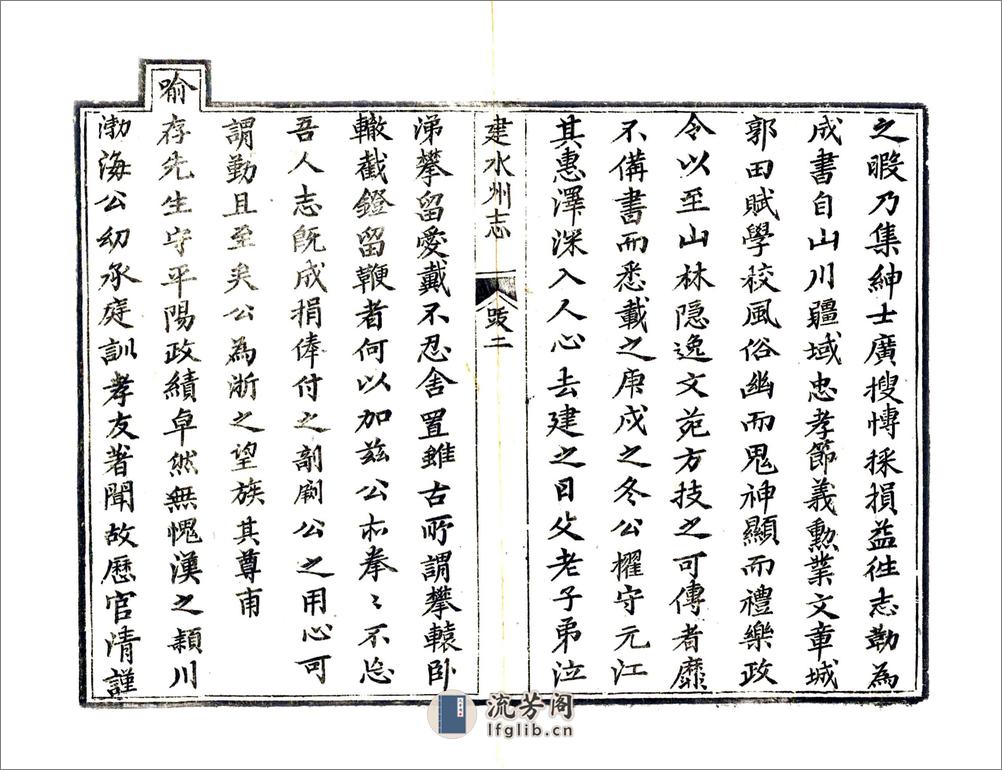 之暇乃集紳士廣搜博採損益徃志勒為
成書自山川疆域忠孝節義勲業文章城
郭田賦學校風俗幽而鬼神顯而禮樂政
令以至山林隐逸文苑方技之可傳者靡
不備書而悉載之庚戌之冬公擢守元江
其惠澤深入人心去建之日父老子弟泣
建水州志
跋二
涕攀留愛戴不忍舍置雖古所謂攀轅卧
轍截鐙留鞭者何以加兹公亦拳〻不忘
吾人志既成捐俸付之剞劂公之用心可
謂勤且至矣公為浙之望族其尊甫
喻
存先生守平陽政績卓然無愧漢之穎川
渤海公幼承庭訓孝友著聞故歷官清謹
流芳阁
lfglib.cn